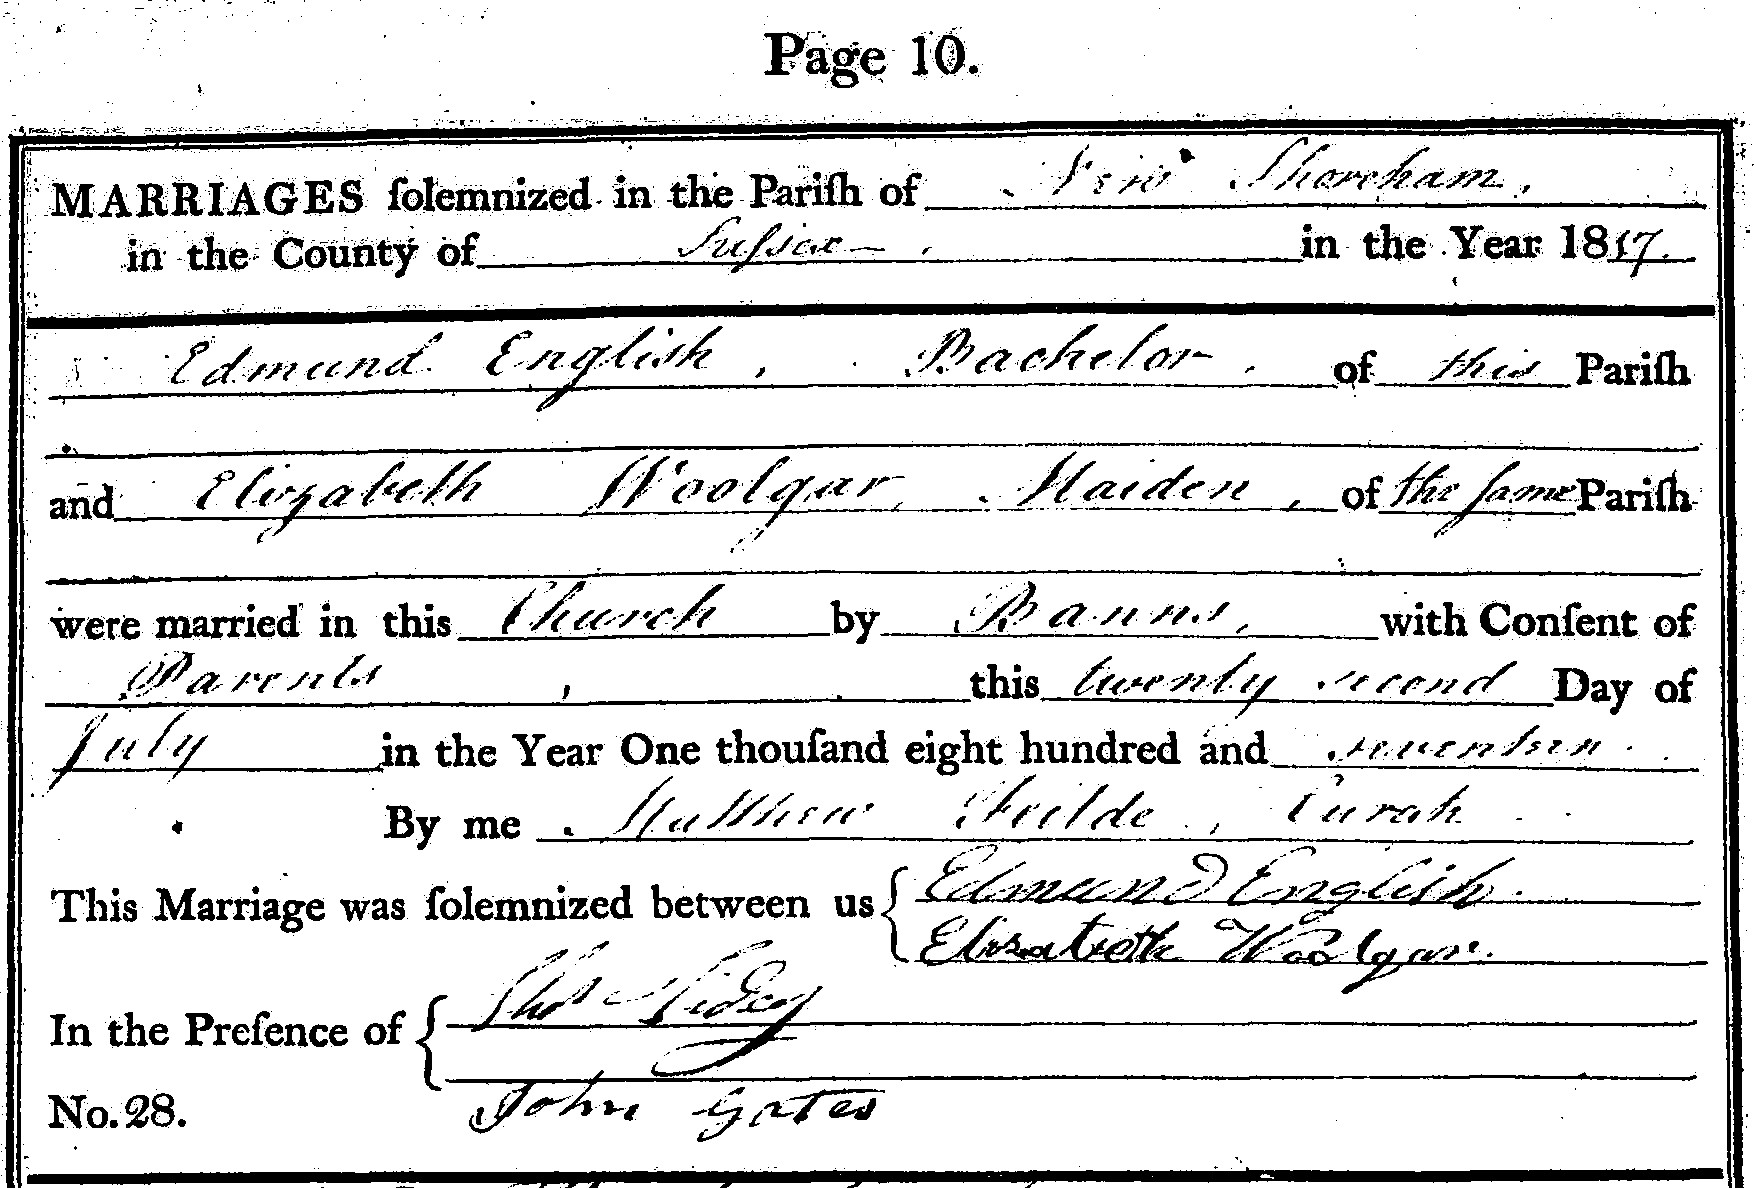 Page 10.
MARRIAGES ſolemnized in the Pariſh of New Shoreham,
in the County of Suſsex in the Year 1817.
Edmund English, Bachelor of this Pariſh
and Elizabeth Woolgar, Maiden, of the ſame Pariſh
were married in this Church by Banns, with Conſent of
Parents, this twenty second Day of
July in the Year One thouſand eight hundred and seventeen.
By me Matthew Curate
This Marriage was ſolemnized between us { Edmund English.
Elizabeth Woolgar.
In the Preſence of { Thos
John Gates
No. 28.